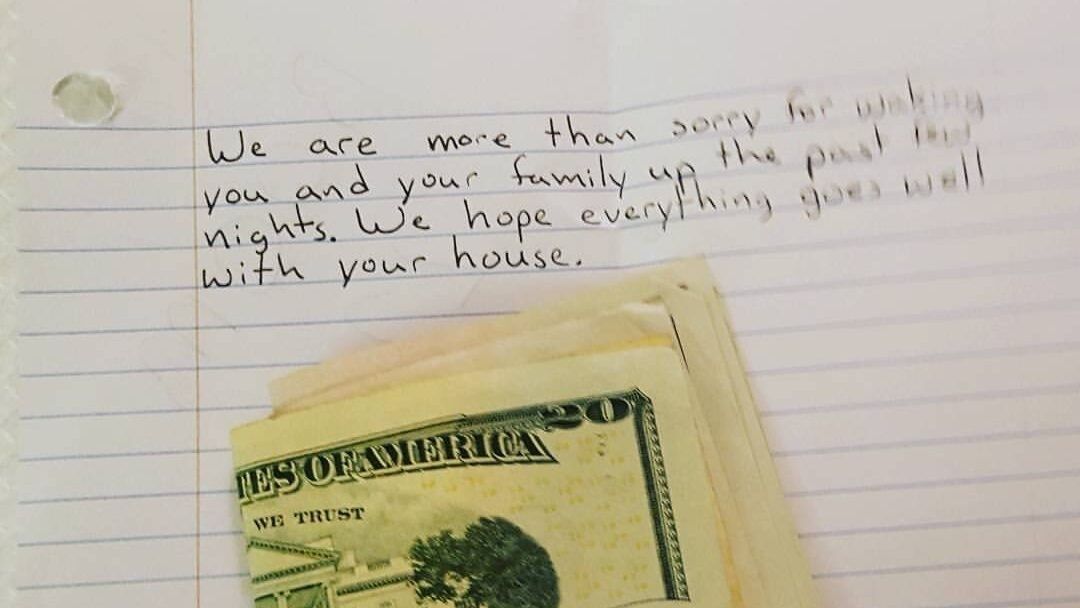 We are more than sorry for waking
you and your family up the past few
nights. We hope everything goes well
with your house.
20
TES OF AMERICA
WE TRUST